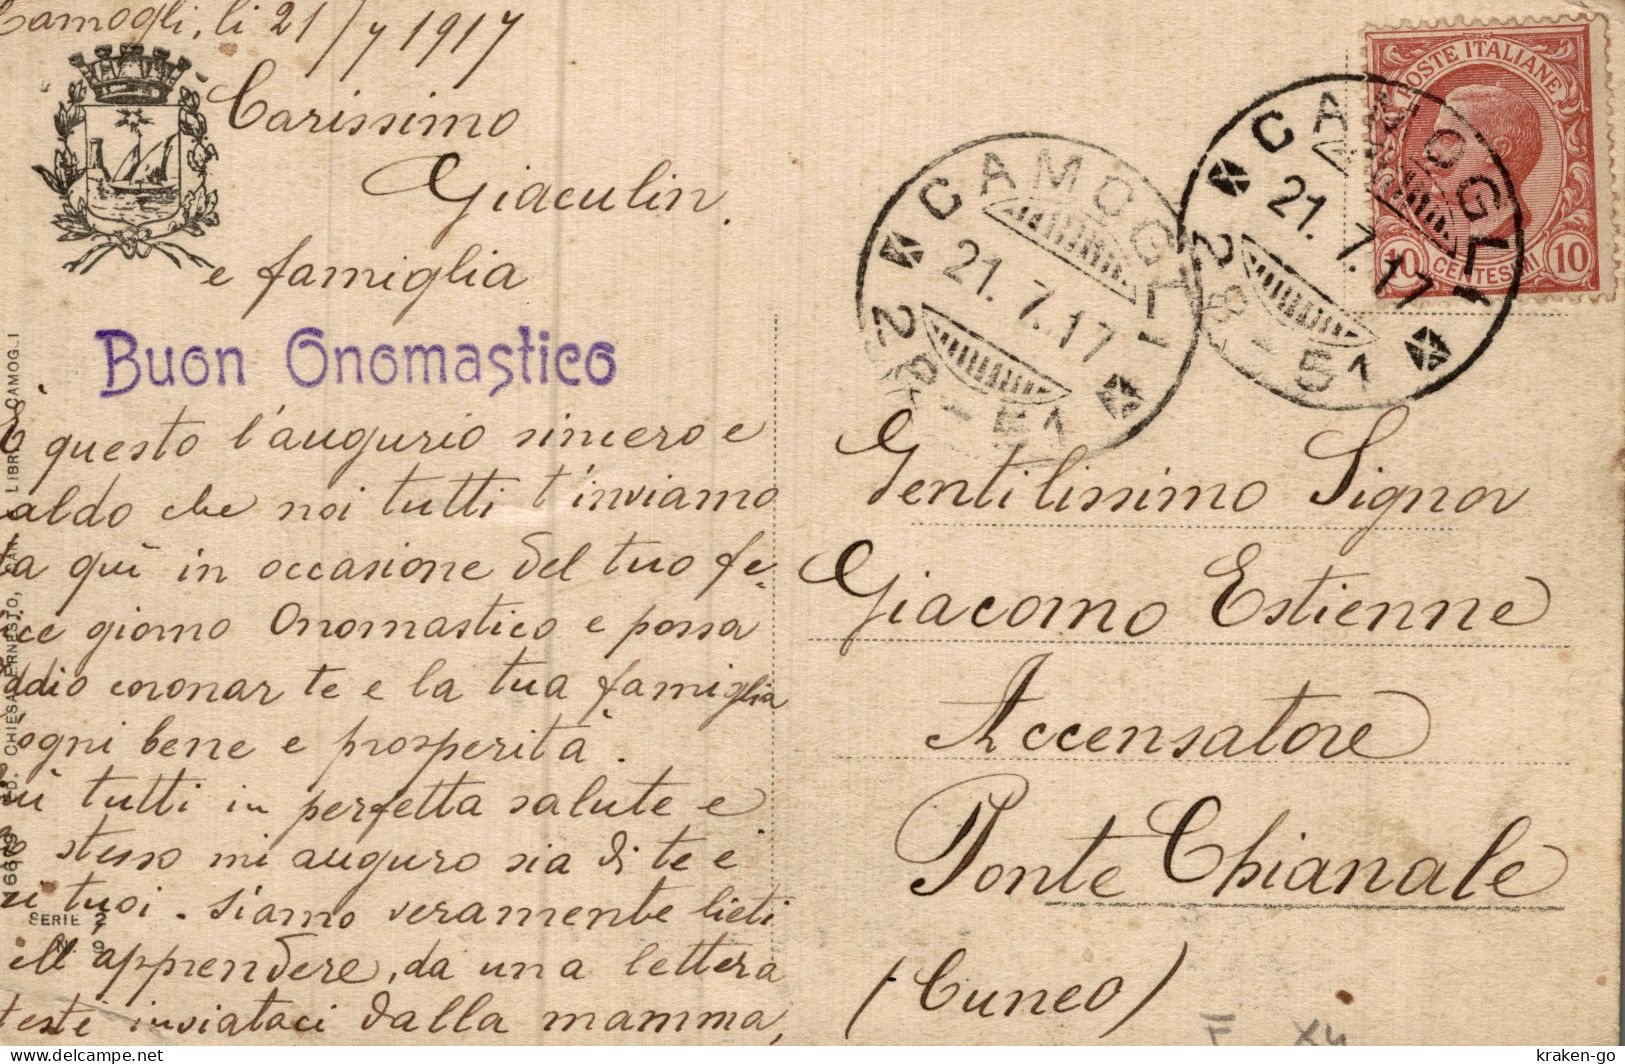 Camogli, li 21/7 1917
Carissimo
Giaculin.
e famiglia
Buon Onomastico
È questo l'augurio sincero e
aldo che noi tutti t'inviamo
ta quì in occasione del tuo fe-
ice giorno Onomastico e possa
ddio coronar te e la tua famiglia
'ogni bene e prosperità.
tutti in perfetta salute e
stesso mi auguro sia di te e
ei tuoi. Siamo veramente lieti
ell'apprendere, da una lettera
testè inviataci dalla mamma,
16669 ED. CHIESA ERNESTO, LIBR. CAMOGLI
SERIE 2
N. 9
POSTE ITALIANE
10 CENTESIMI 10
CAMOGLI
21.7.17
28-51
CAMOGLI
21.7.17
28-51
Gentilissimo Signor
Giacomo Estienne
Accensatore
Ponte Chianale
(Cuneo)
F XU
kraken-go